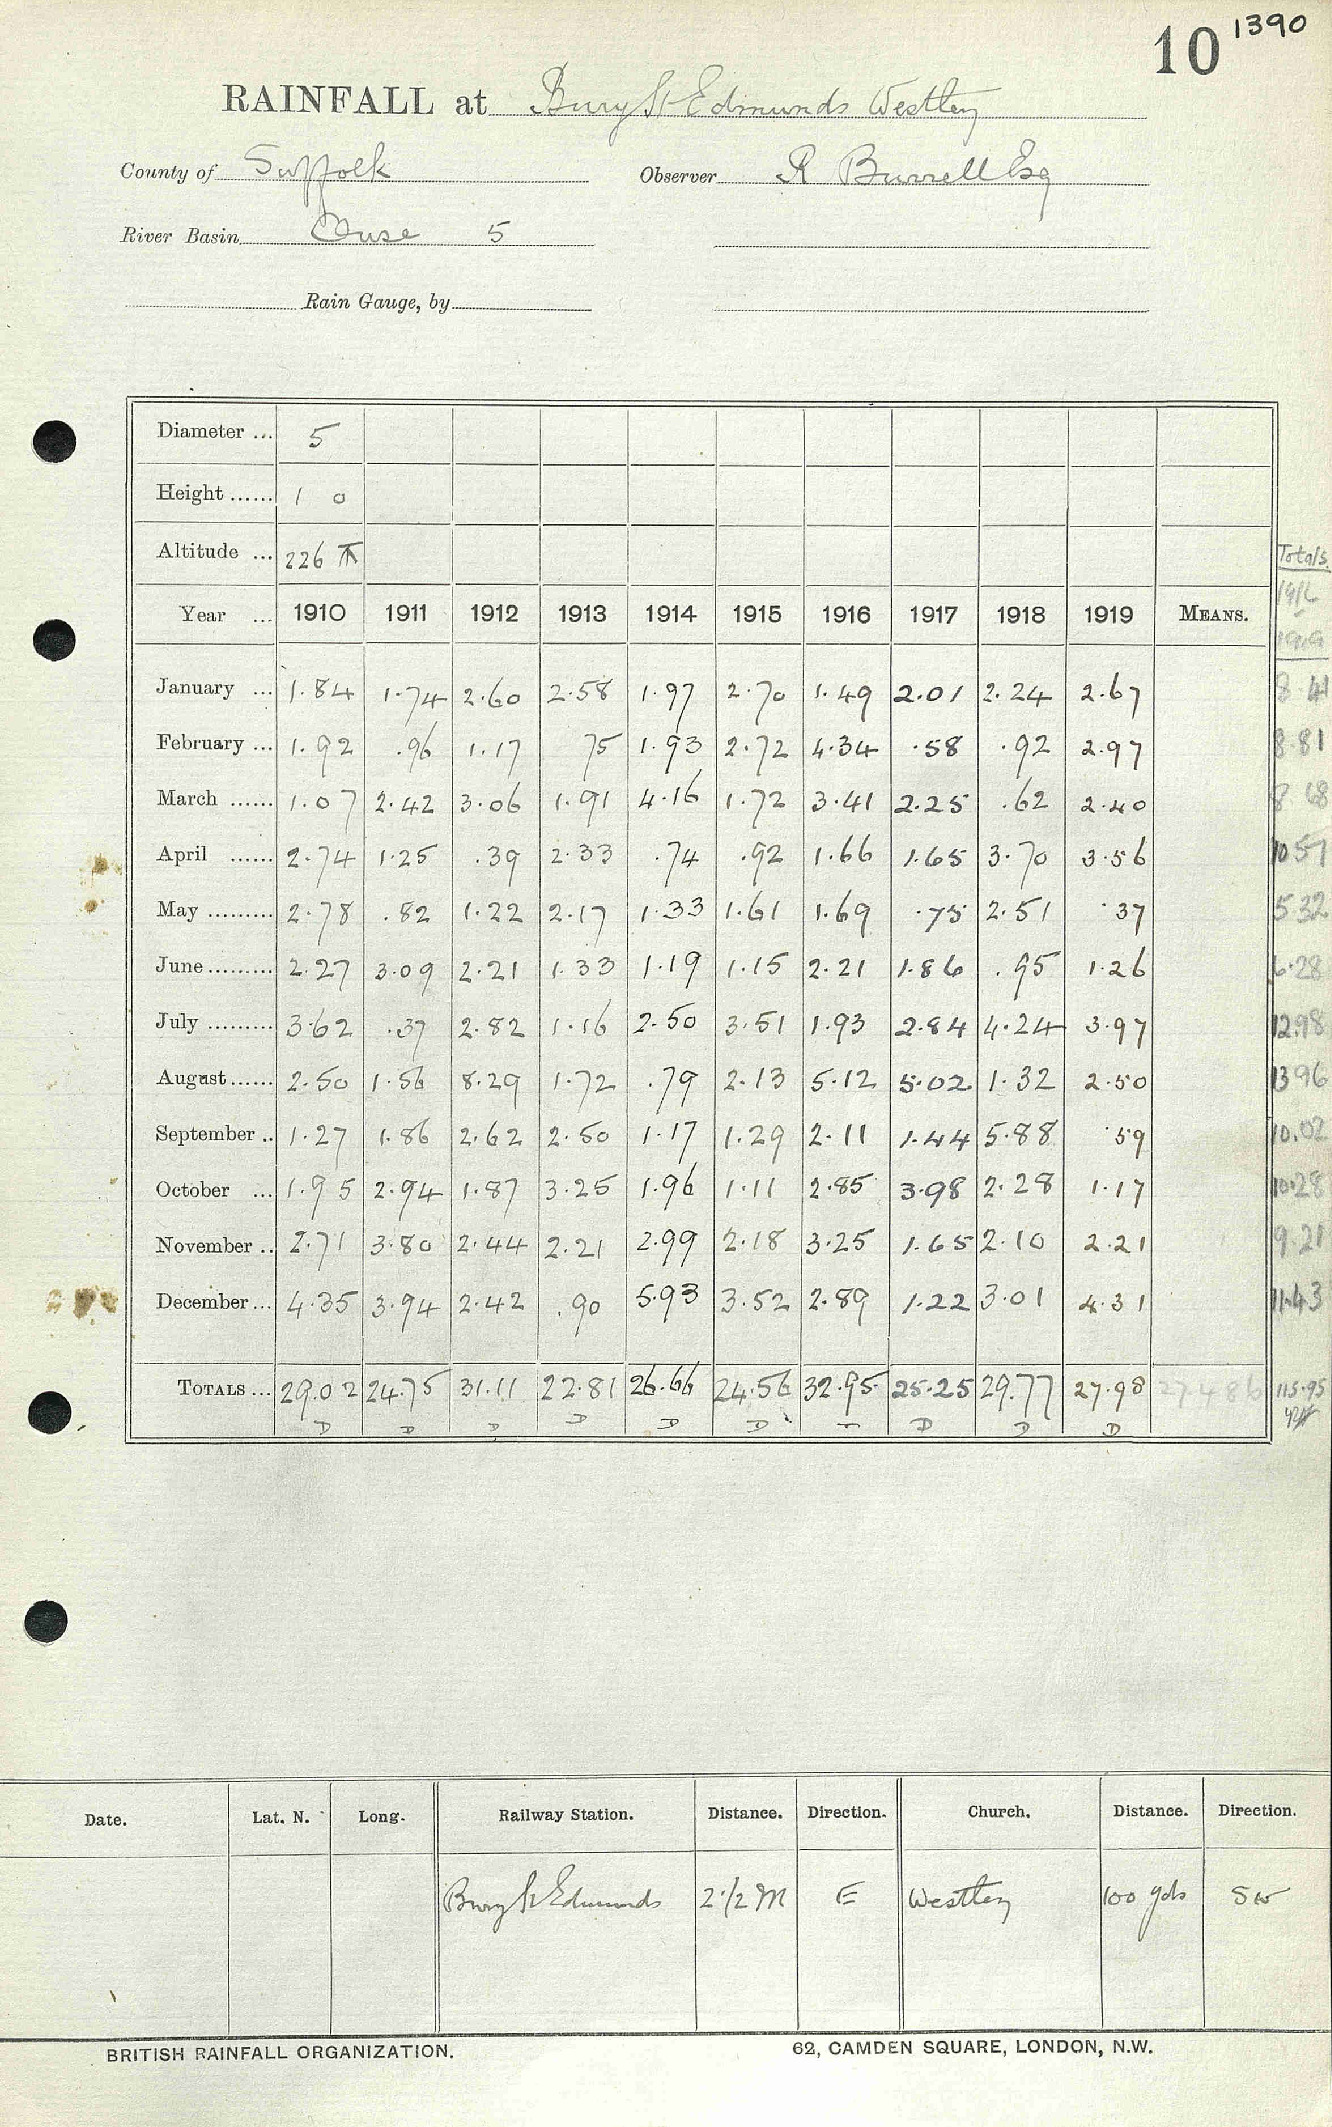 10 1390
RAINFALL at Bury St Edmunds Westley
County of Suffolk Observer R Burrell Esq
River Basin Ouse 5
Rain Gauge, by
Diameter ... 5
Height ...... 1 0
Altitude ... 226 Totals
Year ... 1910 1911 1912 1913 1914 1915 1916 1917 1918 1919 MEANS. 1916 1919
January ... 1.84 1.74 2.60 2.58 1.97 2.70 1.49 2.01 2.24 2.67 8.41
February ... 1.92 .96 1.17 75 1.93 2.72 4.34 .58 .92 2.97 8.81
March ...... 1.07 2.42 3.06 1.91 4.16 1.72 3.41 2.25 .62 2.40 8 68
April ...... 2.74 1.25 .39 2.33 .74 .92 1.66 1.65 3.70 3.56 10 57
May ......... 2.78 .82 1.22 2.17 1.33 1.61 1.69 .75 2.51 .37 5 32
June ......... 2.27 3.09 2.21 1.33 1.19 1.15 2.21 1.86 .95 1.26 6.28
July ......... 3.62 .37 2.82 1.16 2.50 3.51 1.93 2.84 4.24 3.97 12.98
August ...... 2.50 1.56 8.29 1.72 .79 2.13 5.12 5.02 1.32 2.50 13 96
September .. 1.27 1.86 2.62 2.50 1.17 1.29 2.11 1.44 5.88 .59 10.02
October ... 1.95 2.94 1.87 3.25 1.96 1.11 2.85 3.98 2.28 1.17 10.28
November .. 2.71 3.80 2.44 2.21 2.99 2.18 3.25 1.65 2.10 2.21 9.21
December ... 4.35 3.94 2.42 .90 5.93 3.52 2.89 1.22 3.01 4.31 11.43
TOTALS ... 29.02 24.75 31.11 22.81 26.66 24.56 32.95 25.25 29.77 27.98 27.486 115.95
D D D D D D D D D
Date. Lat. N. Long. Railway Station. Distance. Direction. Church. Distance. Direction.
Bury St Edmunds 2 1/2 M E Westley 100 yds SW
BRITISH RAINFALL ORGANIZATION. 62, CAMDEN SQUARE, LONDON, N.W.